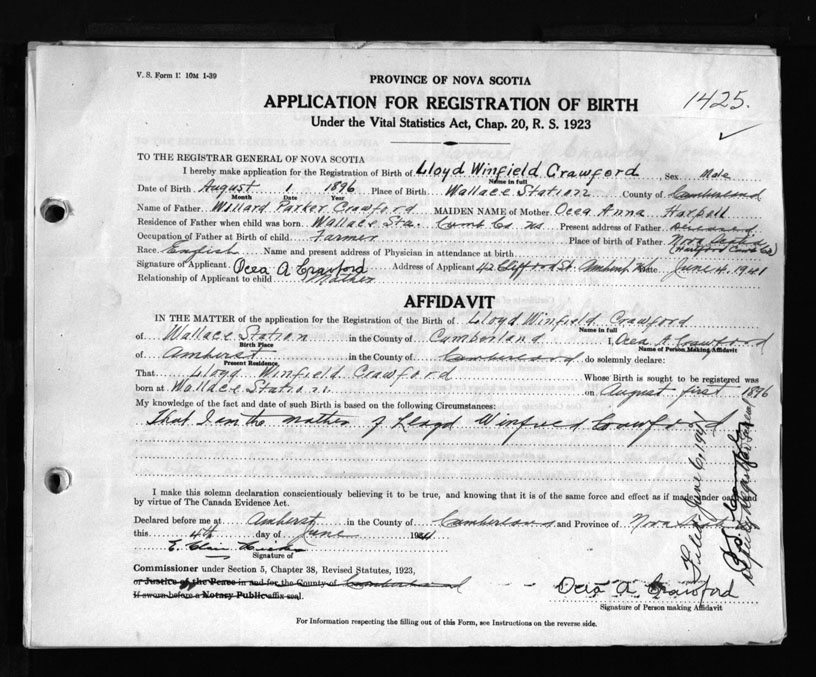 V. S. Form E 10M 1-39
PROVINCE OF NOVA SCOTIA
APPLICATION FOR REGISTRATION OF BIRTH
1425.
Under the Vital Statistics Act, Chap. 20, R. S. 1923
TO THE REGISTRAR GENERAL OF NOVA SCOTIA
I hereby make application for the Registration of Birth of Lloyd Winfield Crawford Sex Male
Name in full
Date of Birth August 1 1896 Place of Birth Wallace Station County of Cumberland
Month Day Year
Name of Father Willard Parker Crawford MAIDEN NAME of Mother Ocea Anna
Residence of Father when child was born Wallace Sta. Cumb Co. NS Present address of Father Deceased
Occupation of Father at Birth of child Farmer Place of birth of Father Nova Scotia
Race English Name and present address of Physician in attendance at birth
Signature of Applicant Ocea A Crawford Address of Applicant 42 Clifford St. Amherst NS Date June 4. 1941
Relationship of Applicant to child Mother
AFFIDAVIT
IN THE MATTER of the application for the Registration of the Birth of Lloyd Winfield Crawford
Name in full
of Wallace Station in the County of Cumberland I, Ocea A Crawford
Birth Place Name of Person Making Affidavit
of Amherst in the County of Cumberland do solemnly declare:
Present Residence
That Lloyd Winfield Crawford Whose Birth is sought to be registered was
born at Wallace Station on August first 1896
My knowledge of the fact and date of such Birth is based on the following Circumstances:
That I am the mother of Lloyd Winfield Crawford
I make this solemn declaration conscientiously believing it to be true, and knowing that it is of the same force and effect as if made under oath and
by virtue of The Canada Evidence Act.
Declared before me at Amherst in the County of Cumberland and Province of Nova Scotia
this 4th day of June 1941
E.
Signature of
Commissioner under Section 5, Chapter 38, Revised Statutes, 1923,
or Justice of the Peace in and for the County of Cumberland
If sworn before a Notary Public affix seal.
Ocea A Crawford
Signature of Person making Affidavit
For Information respecting the filling out of this Form, see Instructions on the reverse side.
Filed June 6, 1941
Deputy Registrar General